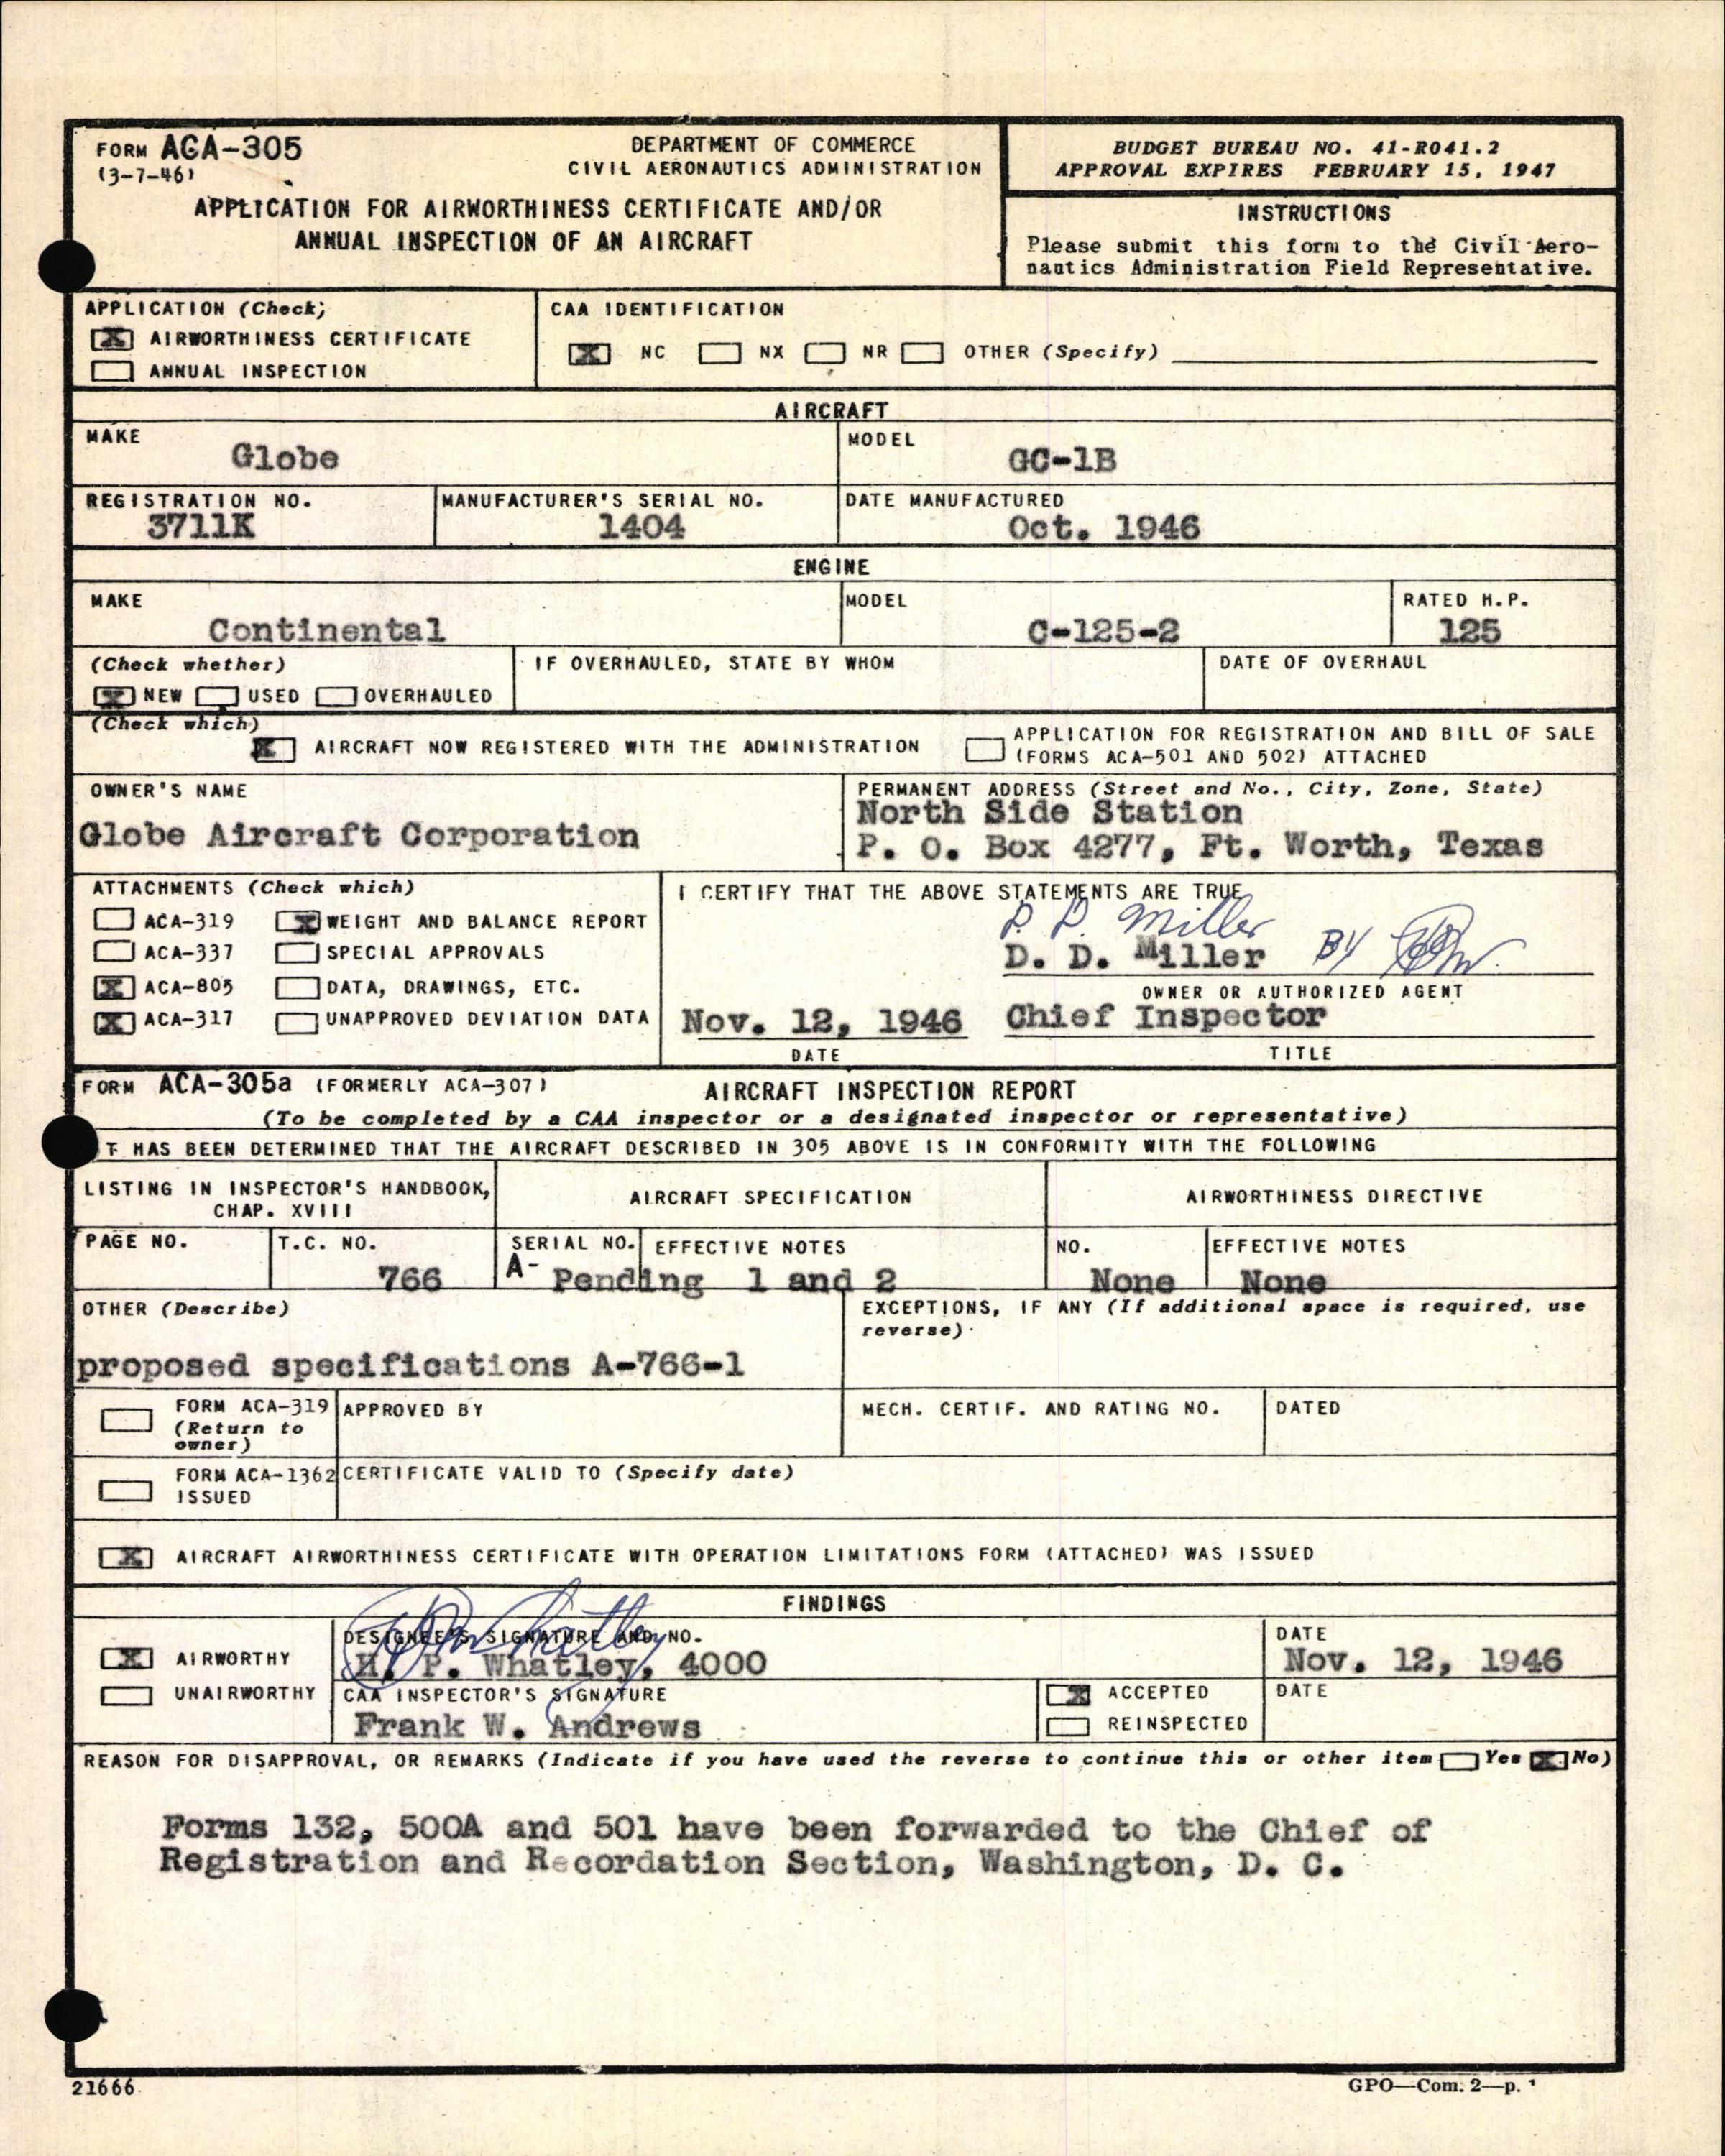 FORM ACA-305
(3-7-46)
DEPARTMENT OF COMMERCE
CIVIL AERONAUTICS ADMINISTRATION
APPLICATION FOR AIRWORTHINESS CERTIFICATE AND/OR
ANNUAL INSPECTION OF AN AIRCRAFT
BUDGET BUREAU NO. 41-R041.2
APPROVAL EXPIRES FEBRUARY 15, 1947
INSTRUCTIONS
Please submit this form to the Civil Aero-
nautics Administration Field Representative.
APPLICATION (Check)
X AIRWORTHINESS CERTIFICATE
ANNUAL INSPECTION
CAA IDENTIFICATION
X NC NX NR OTHER (Specify)
AIRCRAFT
MAKE
Globe
MODEL
GC-1B
REGISTRATION NO.
3711K
MANUFACTURER'S SERIAL NO.
1404
DATE MANUFACTURED
Oct. 1946
ENGINE
MAKE
Continental
MODEL
C-125-2
RATED H.P.
125
(Check whether)
X NEW USED OVERHAULED
IF OVERHAULED, STATE BY WHOM
DATE OF OVERHAUL
(Check which)
X AIRCRAFT NOW REGISTERED WITH THE ADMINISTRATION
APPLICATION FOR REGISTRATION AND BILL OF SALE
(FORMS ACA-501 AND 502) ATTACHED
OWNER'S NAME
Globe Aircraft Corporation
PERMANENT ADDRESS (Street and No., City, Zone, State)
North Side Station
P. O. Box 4277, Ft. Worth, Texas
ATTACHMENTS (Check which)
ACA-319 X WEIGHT AND BALANCE REPORT
ACA-337 SPECIAL APPROVALS
X ACA-805 DATA, DRAWINGS, ETC.
X ACA-317 UNAPPROVED DEVIATION DATA
I CERTIFY THAT THE ABOVE STATEMENTS ARE TRUE
D. D. Miller
D. D. Miller BY
OWNER OR AUTHORIZED AGENT
Nov. 12, 1946 Chief Inspector
DATE TITLE
FORM ACA-305a (FORMERLY ACA-307) AIRCRAFT INSPECTION REPORT
(To be completed by a CAA inspector or a designated inspector or representative)
T HAS BEEN DETERMINED THAT THE AIRCRAFT DESCRIBED IN 305 ABOVE IS IN CONFORMITY WITH THE FOLLOWING
LISTING IN INSPECTOR'S HANDBOOK,
CHAP. XVIII
AIRCRAFT SPECIFICATION
AIRWORTHINESS DIRECTIVE
PAGE NO.
T.C. NO.
766
SERIAL NO.
A- Pending
EFFECTIVE NOTES
1 and 2
NO.
None
EFFECTIVE NOTES
None
OTHER (Describe)
proposed specifications A-766-1
EXCEPTIONS, IF ANY (If additional space is required, use
reverse)
FORM ACA-319
(Return to
owner)
APPROVED BY
MECH. CERTIF. AND RATING NO.
DATED
FORM ACA-1362
ISSUED
CERTIFICATE VALID TO (Specify date)
X AIRCRAFT AIRWORTHINESS CERTIFICATE WITH OPERATION LIMITATIONS FORM (ATTACHED) WAS ISSUED
FINDINGS
X AIRWORTHY
UNAIRWORTHY
DESIGNEE'S SIGNATURE AND NO.
H. P. Whatley, 4000
DATE
Nov. 12, 1946
CAA INSPECTOR'S SIGNATURE
Frank W. Andrews
X ACCEPTED
REINSPECTED
DATE
REASON FOR DISAPPROVAL, OR REMARKS (Indicate if you have used the reverse to continue this or other item Yes X No)
Forms 132, 500A and 501 have been forwarded to the Chief of
Registration and Recordation Section, Washington, D. C.
21666
GPO—Com. 2—p.